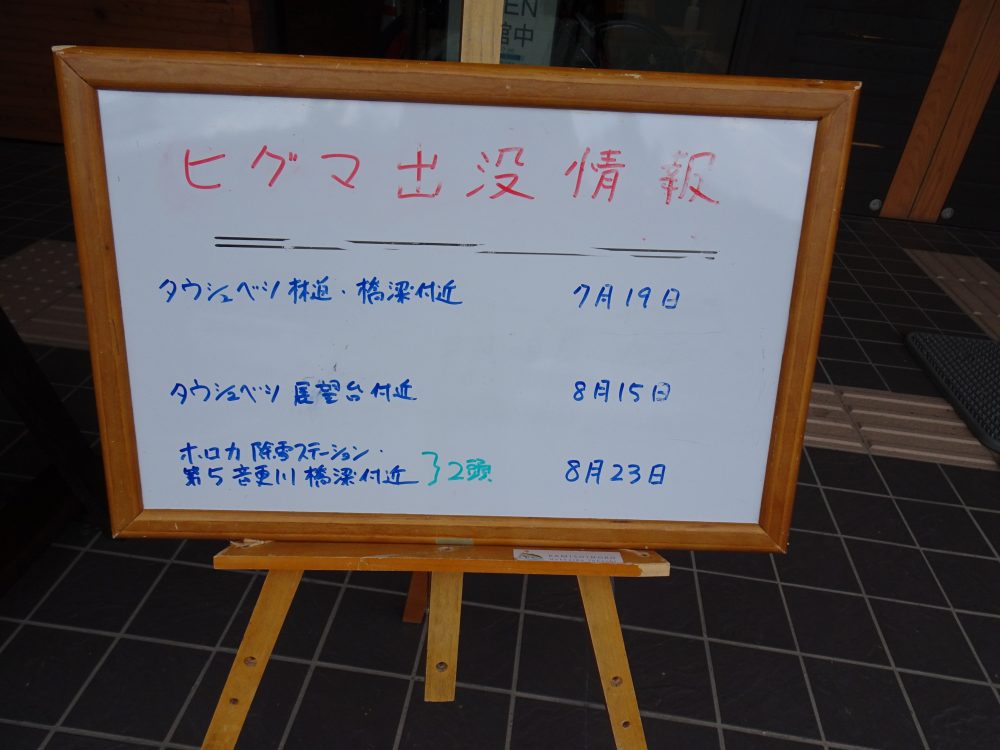 EN
館中
ヒグマ出没情報
タウシュベツ林道・橋梁付近 7月19日
タウシュベツ展望台付近 8月15日
ホロカ除雪ステーション・
第5音更川橋梁付近 }2頭 8月23日
KAMISHIHORO